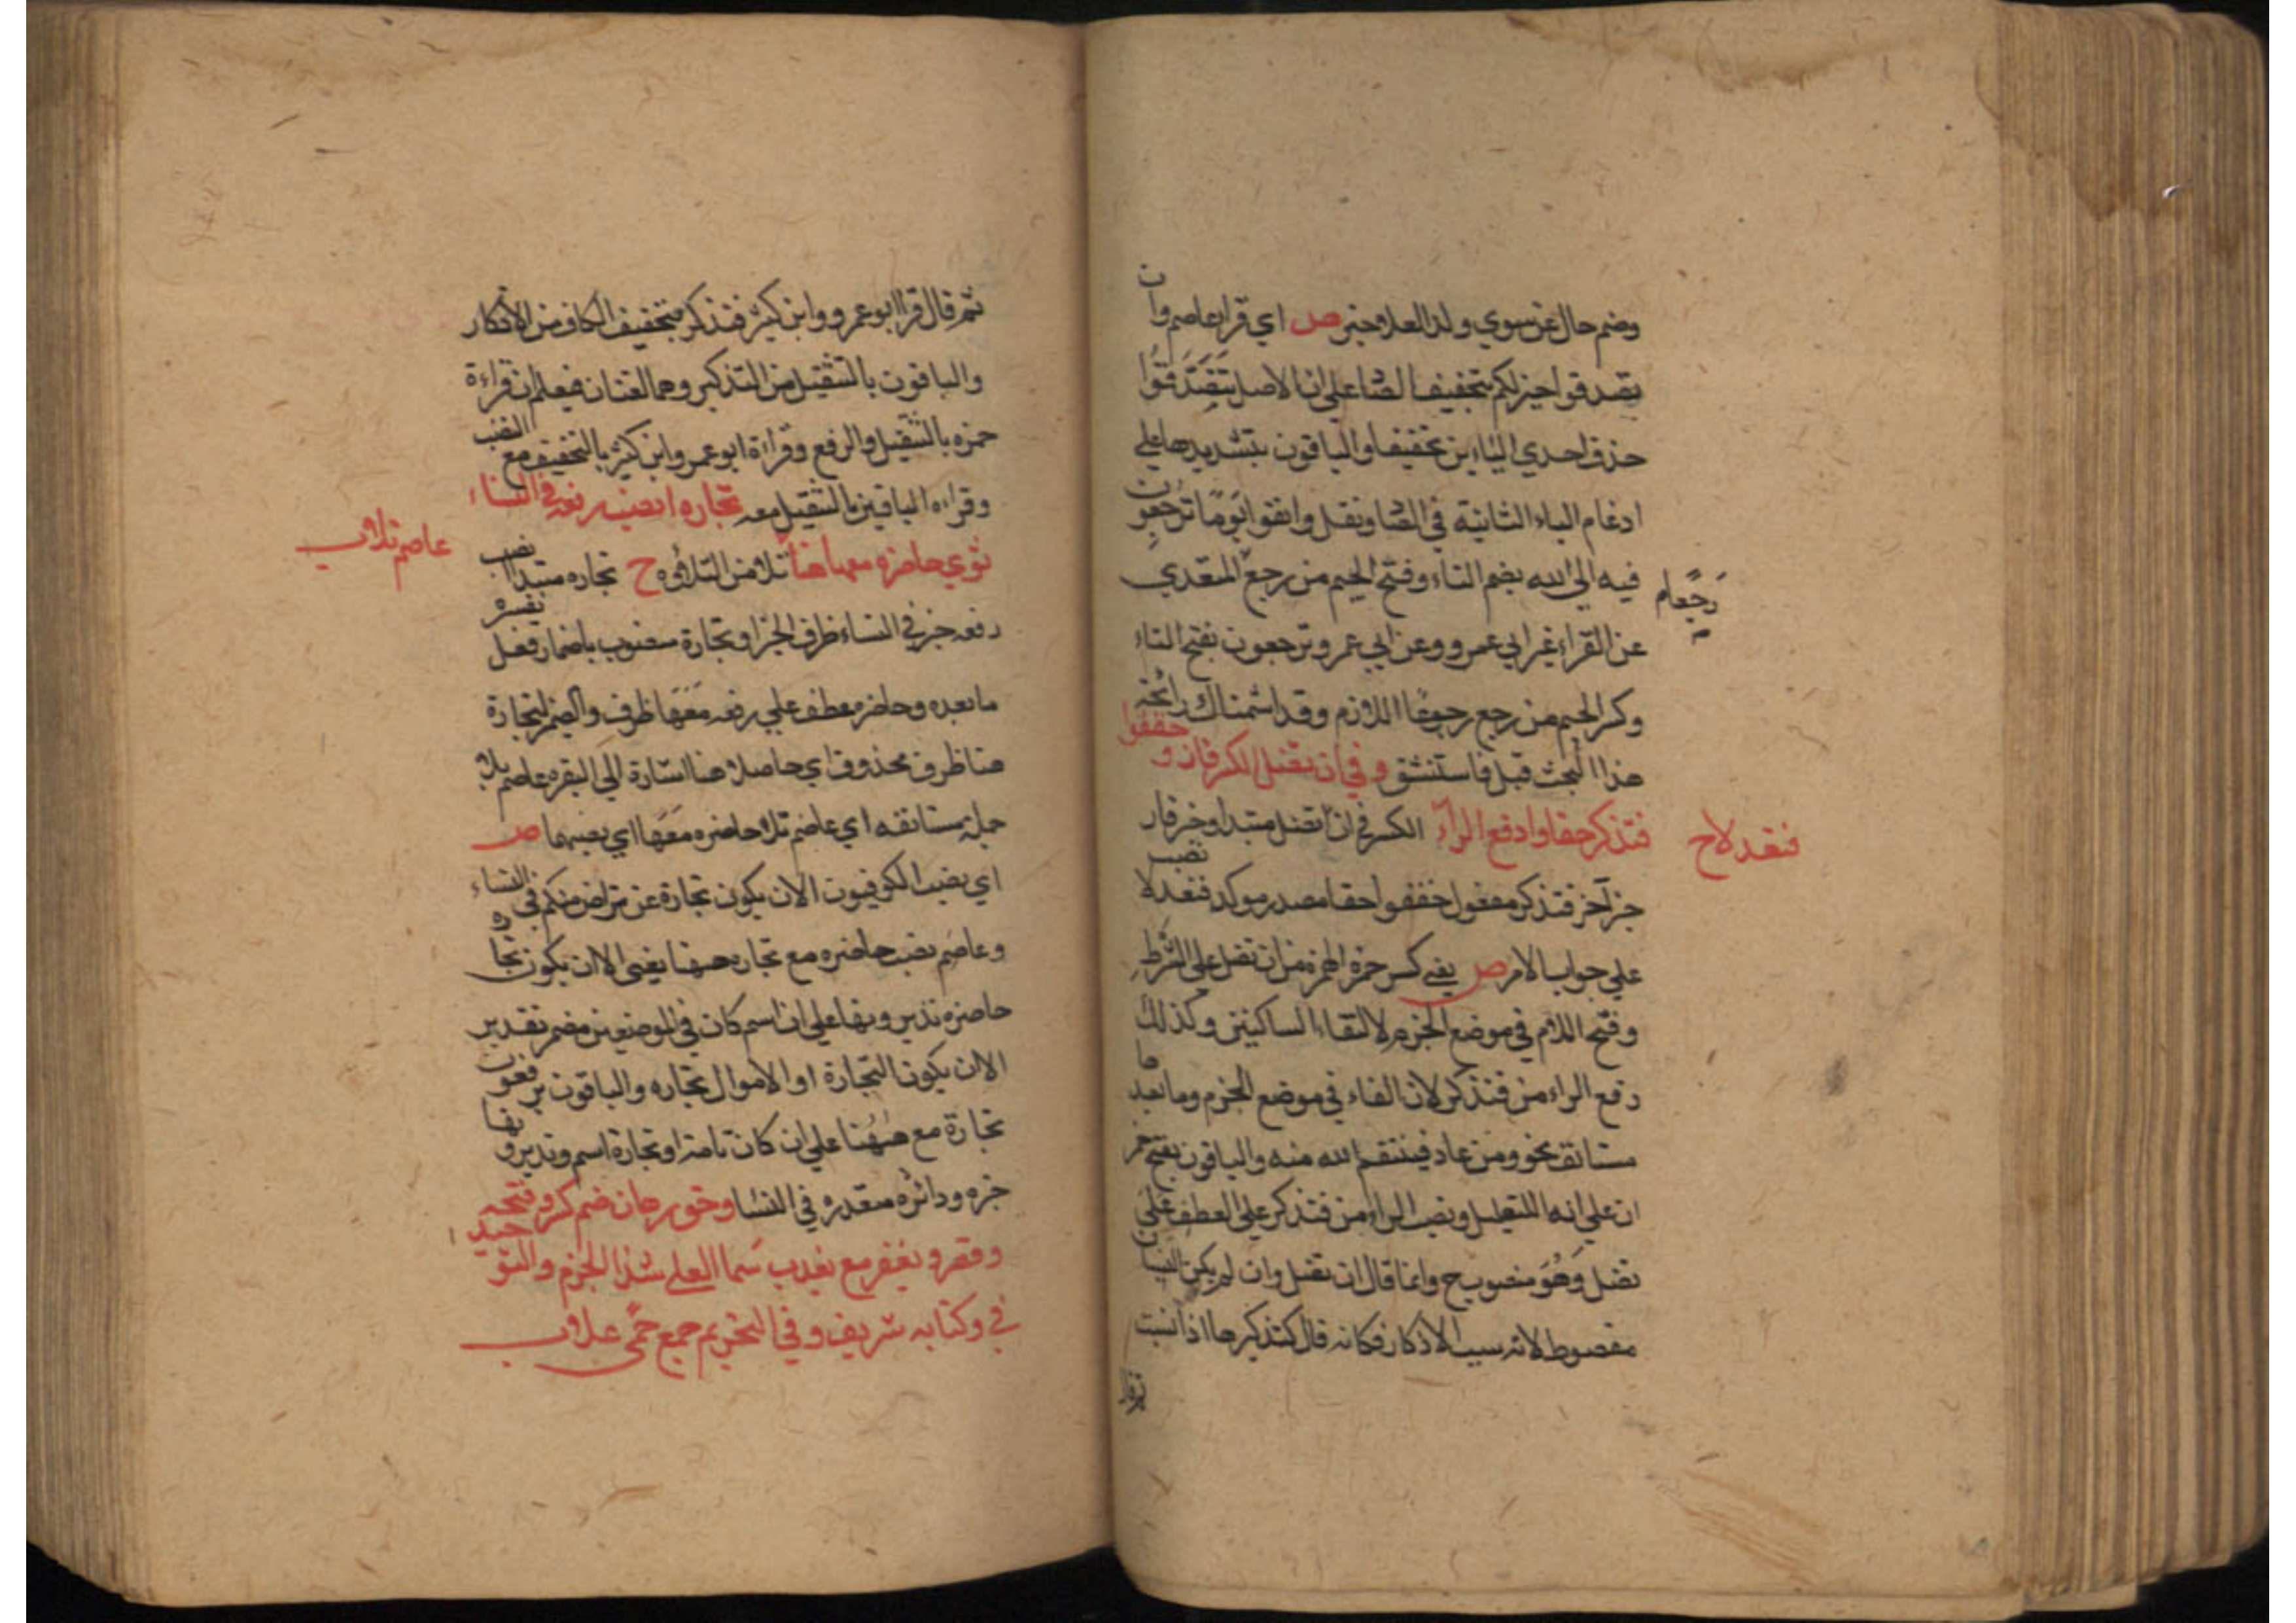 وضم حال عن سوي ولد العلا خبر ص اي قرا عاصم وان
تصدقوا خير لكم بتخفيف الصا علي ان الاصل تتصدقوا
حذف احدي التاين تخفيفا والباقون بتشديدها علي
ادغام التاء الثانية في الصا ونقل واتقوا يوما ترجعون
فيه الي الله بضم التاء وفتح الجيم من رجع المتعدي
عن القراء غير ابي عمرو وعن ابي عمرو ترجعون بفتح التاء
وكسر الجيم من رجع رجوعا اللازم وقد اشممناك رائحة
هذا البحث قبل فاستنشق وفي ان تضل الكسر فاز وخففوا
فتذكر حقا وارفع الراء الكسر في ان تضل مبتدا وخبر فاز
فتعدلا ح
خبر آخر فتذكر مفعول خففوا حقا مصدر موكد فتعدلا نصب
علي جواب الامر ص يعني كسر حمزة الهمزة من ان تضل علي الشرط
وفتح اللام في موضع الجزم لالتقاء الساكنين وكذلك
رفع الراء من فتذكر لان الفاء في موضع الجزم وما بعدها
مستانف نحو ومن عاد فينتقم الله منه والباقون بفتح همز
ان علي انه للتعليل ونصب الراء من فتذكر علي العطف علي
تضل وهو منصوب ح وانما قال ان تضل وان لم يكن النسيان
مقصوط لانه سبب الاذكار فكانه قال كتذكيرها اذا نسيت
ثم قال قرا ابو عمرو وابن كثير فتذكر بتخفيف الكاف من الاذكار
والباقون بالتثقيل من التذكير وهما لغتان فيعلم ان قراءة
حمزه بالتثقيل والرفع وقراءة ابو عمرو وابن كثير بالتخفيف مع النصب
وقراءه الباقين بالتثقيل معه تجاره انصب رفعه في النساء
عاصم تلا
ثوي حاضره معها هنا تلا من التلاوه ح تجاره مبتدا انصب
رفعه خبر في النساء ظرف الخبر او تجارة منصوب باضمار فعل يفسره
ما بعده وحاضره عطف علي رفعه معها ظرف والضمير لتجارة
هنا ظرف محذوف اي حاصلا هنا اشارة الي البقره عاصم تلا
جملة مستانفه اي عاصم تلا حاضره معها اي نصبهما ص
اي نصب الكوفيون الا ان يكون تجارة عن تراض منكم في النساء
وعاصم نصب حاضره مع تجاره ههنا يعني الا ان يكون تجاره
حاضره تديرونها علي ان اسم كان في الموضعين مضمر تقدير
الا ان يكون التجارة او الاموال تجاره والباقون يرفعون
تجارة مع ههنا علي ان كان تامة او تجارة اسم وتديرونها
خبره ودائره مقدره في النسا وحق رهان ضم كسر وفتحه
وقصر ويغفر مع يعذب سما العلي شذا الجزم والتوحيد
في وكتابه شريف وفي التحريم جمع حمي علا